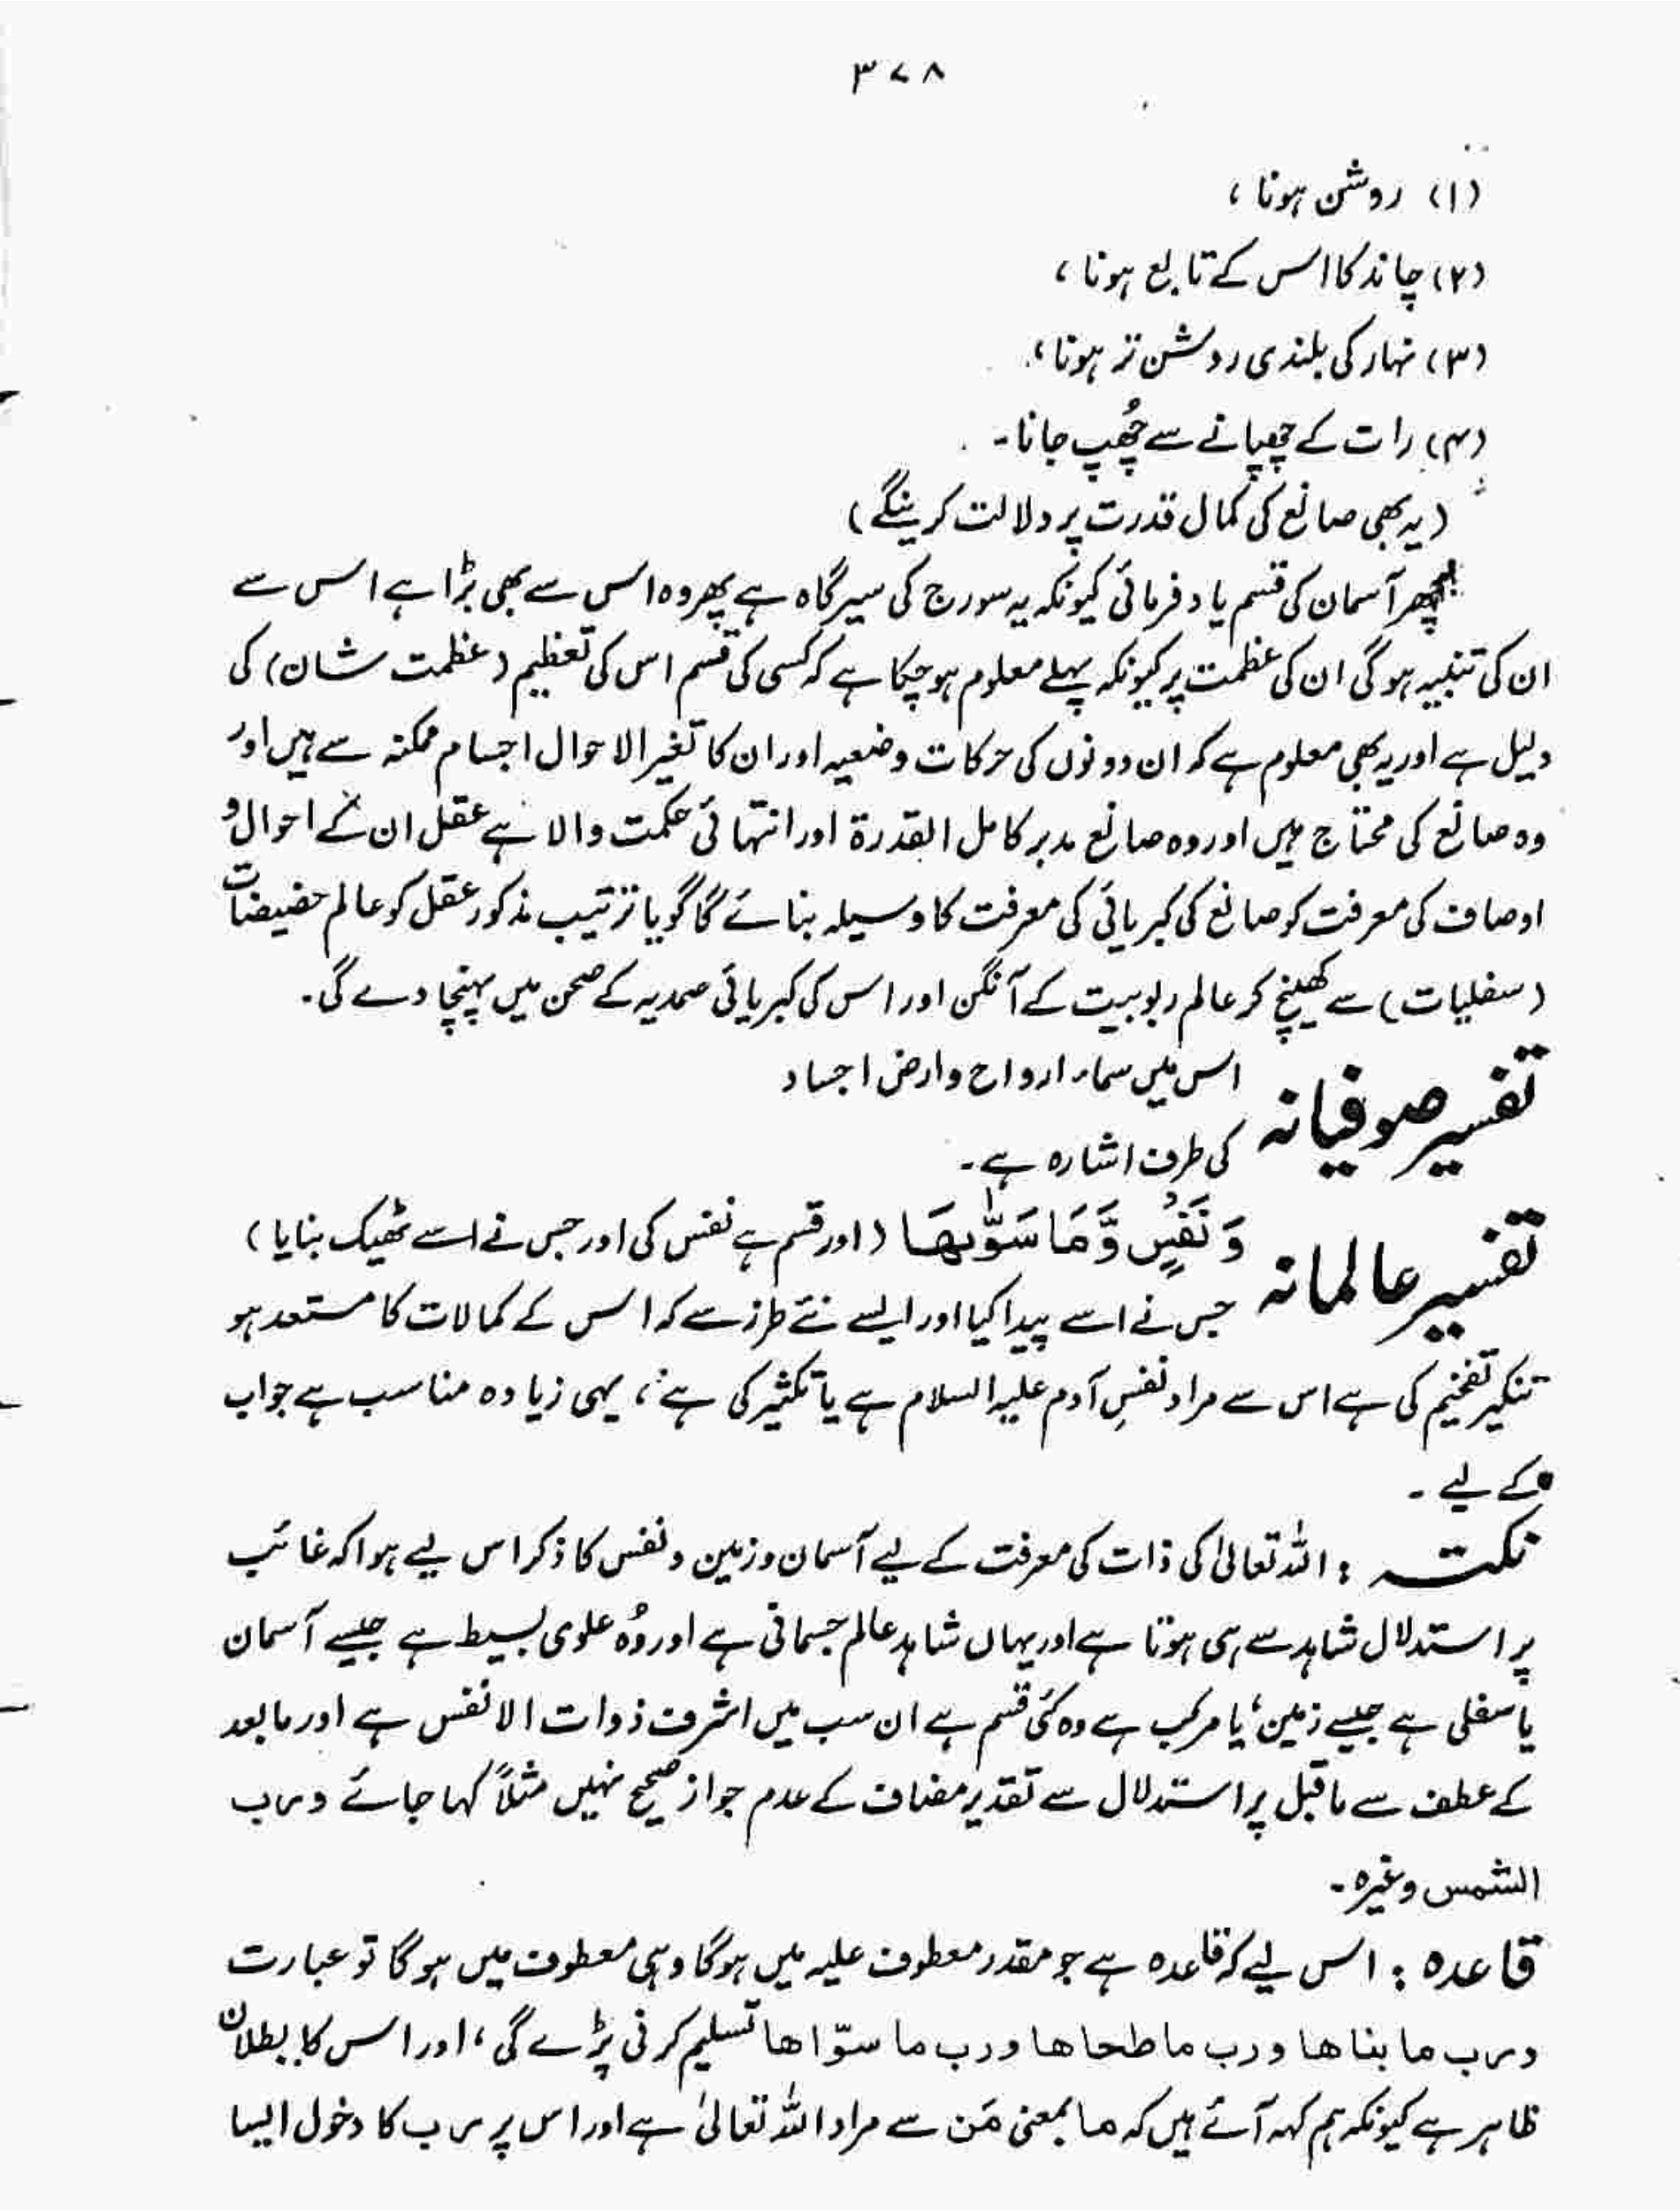 ۳۷۸
(۱) روشن ہونا،
(۲) چاند کا اس کے تابع ہونا،
(۳) نہار کی بلندی روشن تر ہونا،
(۴) رات کے چھپانے سے چُھپ جانا۔
(یہ بھی صانع کی کمال قدرت پر دلالت کرینگے)
پھر آسمان کی قسم یاد فرمائی کیونکہ یہ سورج کی سیر گاہ ہے پھر وہ اس سے بھی بڑا ہے اس سے
ان کی تنبیہ ہوگی ان کی عظمت پر کیونکہ پہلے معلوم ہو چکا ہے کہ کسی کی قسم اس کی تعظیم (عظمت شان) کی
دلیل ہے اور یہ بھی معلوم ہے کہ ان دونوں کی حرکات وضعیہ اور ان کا تغیر الاحوال اجسام ممکنہ سے ہیں اور
وہ صانع کی محتاج ہیں اور وہ صانع مدبر کامل القدرۃ اور انتہائی حکمت والا ہے عقل ان کے احوال و
اوصاف کی معرفت کو صانع کی کبریائی کی معرفت کا وسیلہ بنائے گا گویا ترتیب مذکور عقل کو عالم حضیضات
(سفلیات) سے کھینچ کر عالم ربوبیت کے آنگن اور اس کی کبریائی صمدیہ کے صحن میں پہنچا دے گی۔
تفسیر صوفیانہ اس میں سماء ارواح و ارض اجساد
کی طرف اشارہ ہے۔
تفسیر عالمانہ وَ نَفْسٍ وَّ مَا سَوّٰىهَا (اور قسم ہے نفس کی اور جس نے اسے ٹھیک بنایا)
جس نے اسے پیدا کیا اور ایسے نئے طرز سے کہ اس کے کمالات کا مستعد ہو
تنکیر تفخیم کی ہے اس سے مراد نفسِ آدم علیہ السلام ہے یا تکثیر کی ہے، یہی زیادہ مناسب ہے جواب
کے لیے۔
نکتہ : اللہ تعالیٰ کی ذات کی معرفت کے لیے آسمان و زمین و نفس کا ذکر اس لیے ہوا کہ غائب
پر استدلال شاہد سے ہی ہوتا ہے اور یہاں شاہد عالم جسمانی ہے اور وُہ علوی بسیط ہے جیسے آسمان
یا سفلی ہے جیسے زمین، یا مرکب ہے وہ کئی قسم ہے ان سب میں اشرف ذوات الانفس ہے اور مابعد
کے عطف سے ماقبل پر استدلال سے تقدیر مضاف کے عدم جواز صحیح نہیں مثلاً کہا جائے ورب
الشمس وغیرہ۔
قاعدہ : اس لیے کہ قاعدہ ہے جو مقدر معطوف علیہ میں ہوگا وہی معطوف میں ہوگا تو عبارت
ورب ما بناھا ورب ما طحاھا ورب ما سوّاھا تسلیم کرنی پڑے گی، اور اس کا بطلان
ظاہر ہے کیونکہ ہم کہہ آئے ہیں کہ ما بمعنی مَن سے مراد اللہ تعالیٰ ہے اور اس پر رب کا دخول ایسا